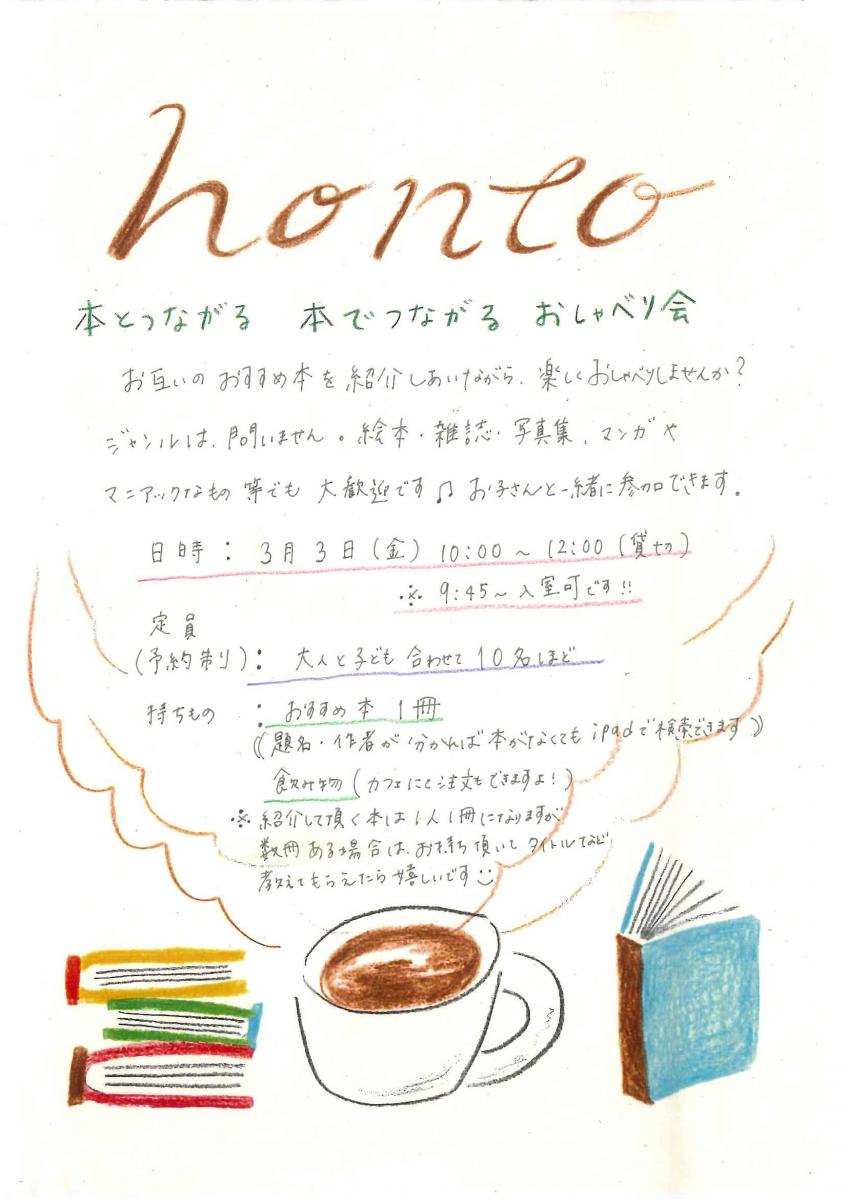 honto
本とつながる 本でつながる おしゃべり会
お互いの おすすめ本を紹介しあいながら、楽しくおしゃべりしませんか?
ジャンルは、問いません。絵本・雑誌・写真集、マンガや
マニアックなもの 等でも 大歓迎です♫ お子さんと一緒に参加できます。
日時: 3月3日(金) 10:00~12:00(貸切)
※ 9:45~入室可です!!
定員
(予約制り): 大人と子ども 合わせて 10名ほど
持ちもの : おすすめ本 1冊
(題名・作者が分かれば本がなくても ipadで検索できます)
飲み物(カフェにて注文もできますよ!)
※紹介して頂く本は1人1冊になりますが
数冊ある場合は、お持ち頂いて タイトルなど
教えてもらえたら嬉しいです